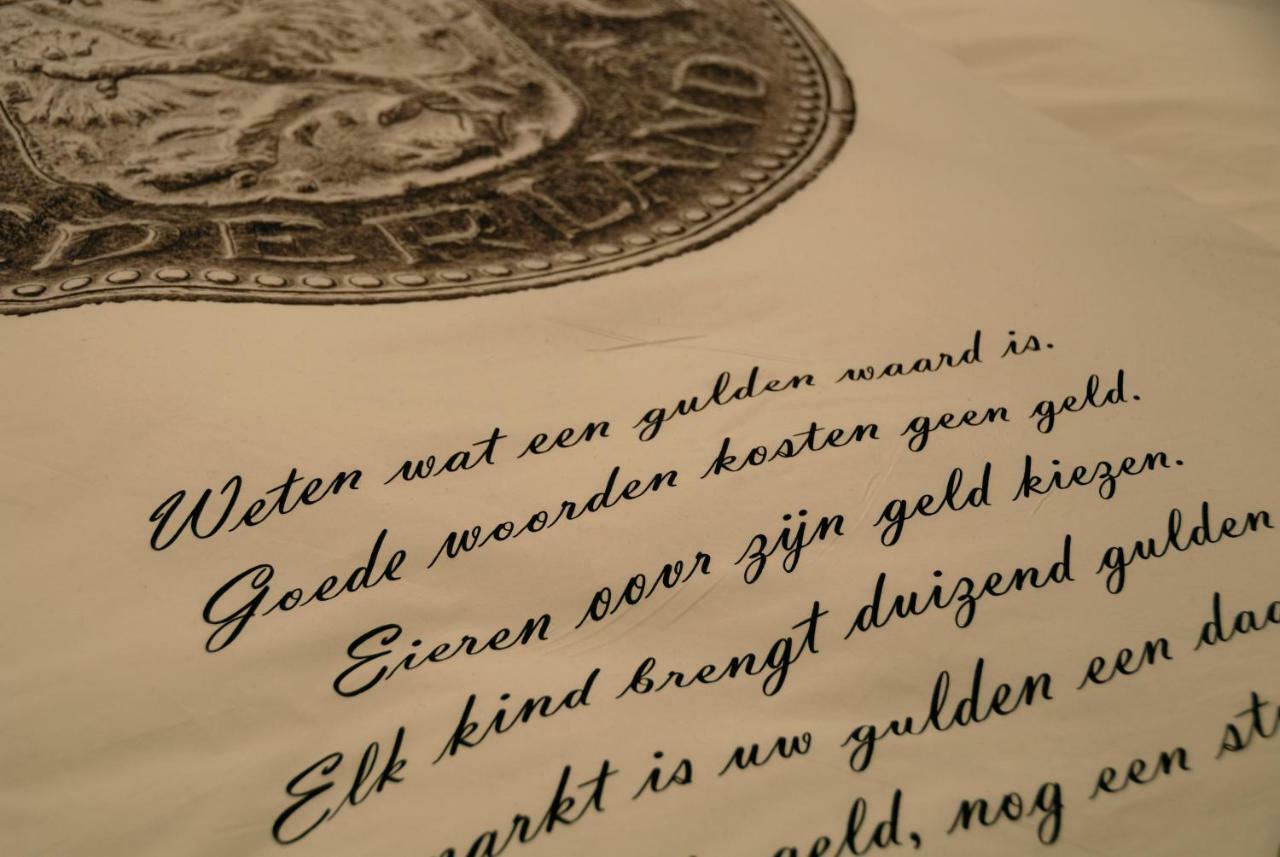 DERLAND
Weten wat een gulden waard is.
Goede woorden kosten geen geld.
Eieren oovr zijn geld kiezen.
Elk kind brengt duizend gulden
is uw gulden een
geld, nog een